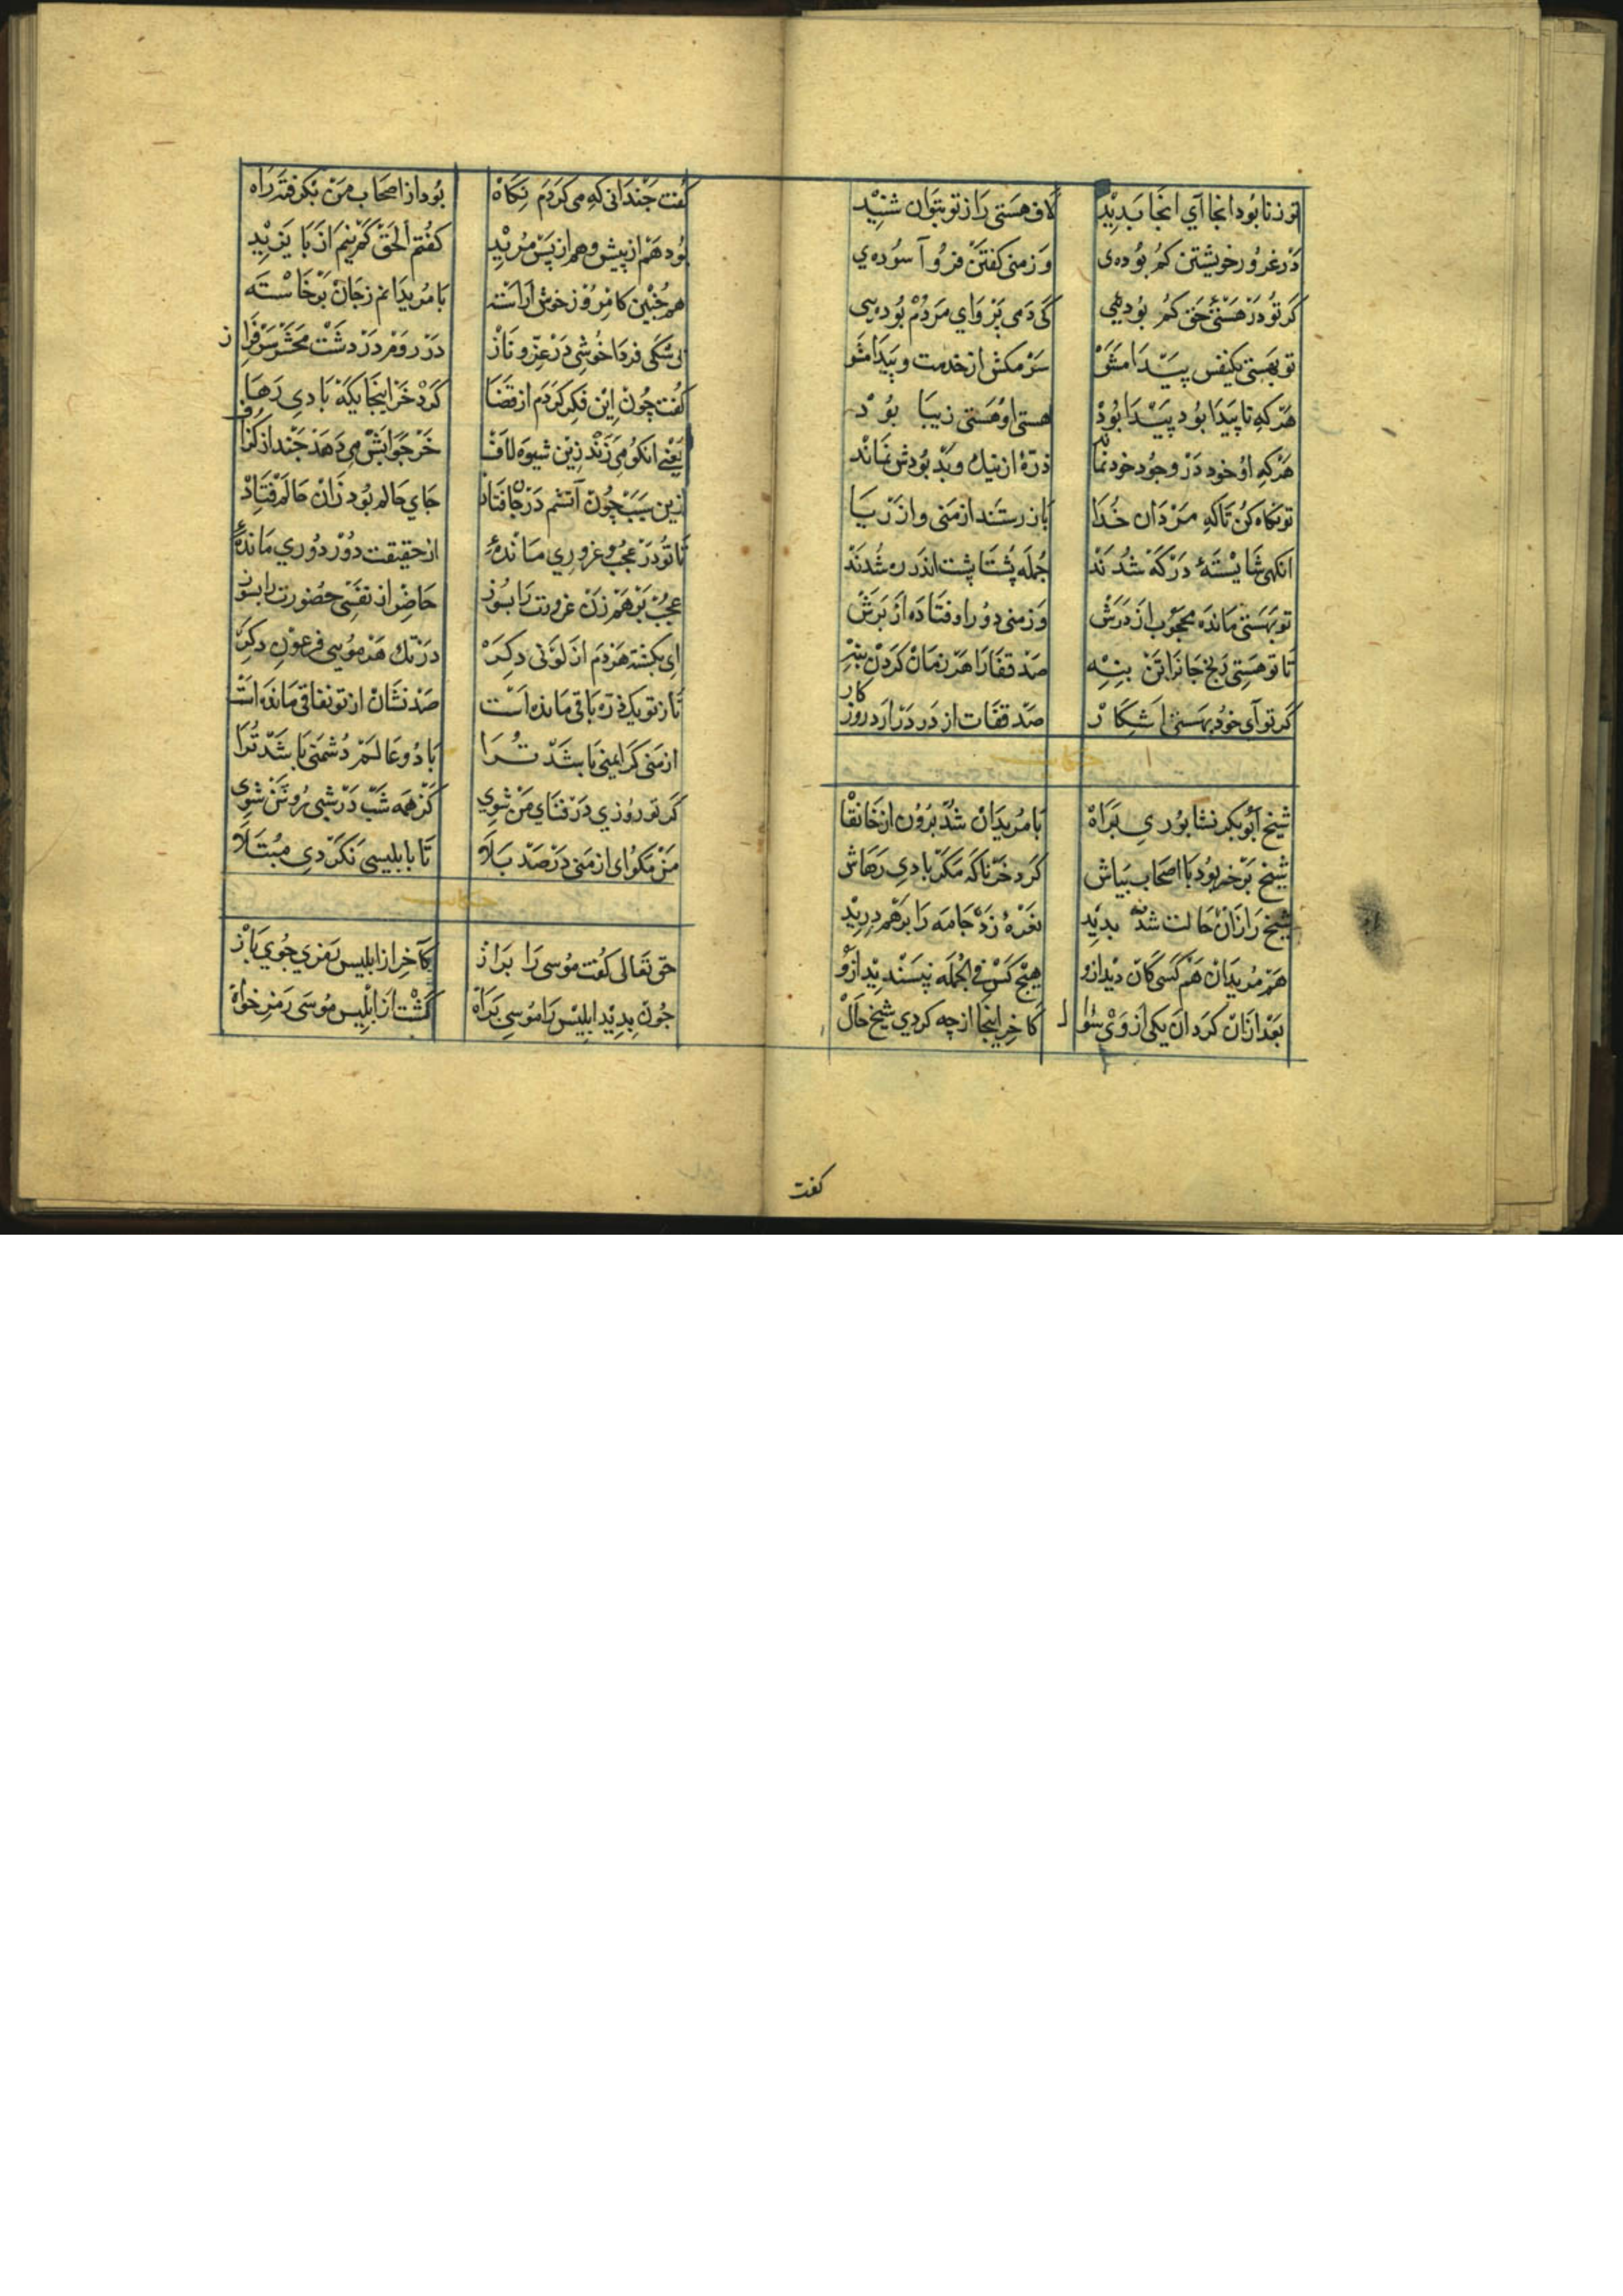 کرزنا بود انجا آي انجا بدید لاف هستی را ز تو بتوان شنید
در غرور خویشتن کم بوده‌ی وز منی کفتن فرو آسوده‌ي
کر تو در هستئ حق کم بودیئی کی دمی پروای مردم بودیی
تو بهستی یکنفس پیدا مشو سر مکش از خدمت و پیدا مشو
هر که ناپیدا بود پیدا بود هستی او هستی زیبا بود
هر که او خود در وجود خود نماند ذرۀ از نیك و بد بودش نماند
تو نکاه کن تا که مردان خدا باز رستند از منی و از ریا
انکهی شایستۀ درکه شدند جمله پشتا پشت اندر ره شدند
تو بهستی مانده محجوب از درش وز منی دور اوفتاده از برش
تا تو هستی رنج جانرا تن بنه صد قفا را هر زمان کردن بنه
کر تو آی خود بهستی اشکار صد قفات از در درارد روزکار
شیخ ابوبکر نشابوري براه با مریدان شد برون از خانقا
شیخ بر خر بود با اصحاب بیاش کرد خر ناکه مکر بادی رهاش
شیخ را زان حالت شد بدید نعرۀ زد جامه را بر هم درید
هم مریدان هم کسی کان دید ازو هیچ کس فی الجمله نپسندید ازو
بعد ازان کرد ان یکی از وی سوال کاخر اینجا از چه کردي شیخ حال
کفت
کفت جندانی که می کردم نکاه بود از اصحاب من بکرفته راه
بود هم از پیش و هم از پس مرید کفتم الحق کم نیم از با یزید
هم جنین کامروز خوش آراسته با مریدانم زجان برخاسته
بی شکی فردا خوشی در عز و ناز در روم در دشت محشر سرفراز
کفت چون این فکر کردم از قضا کرد خر اینجایکه بادی رها
یعنی انکو می زند زین شیوه لاف خر جوابش می دهد جند از کزاف
زین سبب چون آتشم در جان فتاد جاي حالم بود زان حالم فتاد
تا تو در عجب و غروري ماندۀ از حقیقت دور دوري ماندۀ
عجب برهم زن غرورت را بسوز حاضر از نفسی حضورت را بسوز
ای بکشته هر دم از لونی دکر در تك هر موی فرعون دکر
تا ز تو یک ذره باقی مانده است صد نشان از تو نفاقی مانده است
از منی کر ایمنی باشد ترا با دو عالم دشمنی باشد ترا
کر تو روزي در فنای من شوي کر همه شب در شبی روشن شوی
من مکو ای از منی در صد بلا تا بابلیسی نکردی مبتلا
حق تعالی کفت موسی را براز کاخر از ابلیس رمزي جوي باز
جون بدید ابلیس را موسی براه کشت از ابلیس موسی رمز خواه